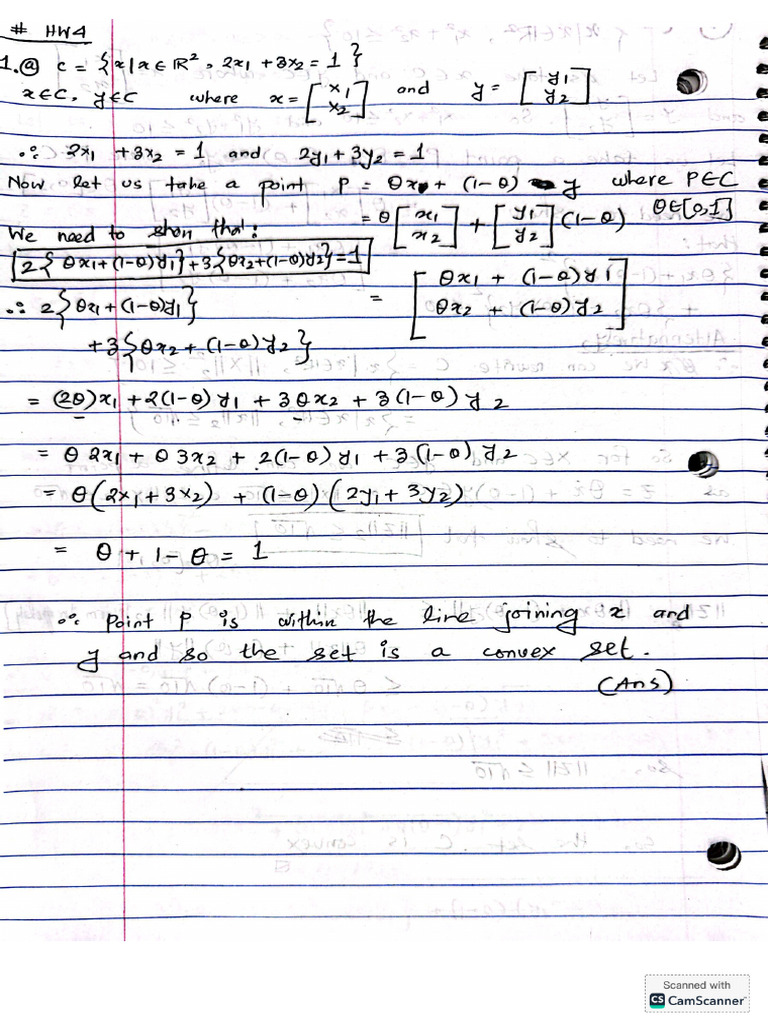 # HW4
1.ⓐ C = {x | x ∈ ℝ², 2x₁ + 3x₂ = 1}
x∈C, y∈C where x = [x₁ x₂] and y = [y₁ y₂]
∴ 2x₁ + 3x₂ = 1 and 2y₁ + 3y₂ = 1
Now let us take a point P = θx + (1-θ) y where P∈C
θ∈[0,1]
= θ [x₁ x₂] + [y₁ y₂] (1-θ)
We need to show that:
2{θx₁+(1-θ)y₁}+3{θx₂+(1-θ)y₂}=1
= [θx₁ + (1-θ)y₁ θx₂ + (1-θ)y₂]
∴ 2{θx₁+(1-θ)y₁}
+3{θx₂+(1-θ)y₂}
= (2θ)x₁+2(1-θ)y₁ + 3θx₂ + 3(1-θ)y₂
= θ 2x₁ + θ 3x₂ + 2(1-θ)y₁ + 3(1-θ)y₂
= θ(2x₁+3x₂) + (1-θ)(2y₁+3y₂)
= θ + 1-θ = 1
∴ Point P is within the line joining x and
y and so the set is a convex set.
(Ans)
Scanned with
CS CamScanner